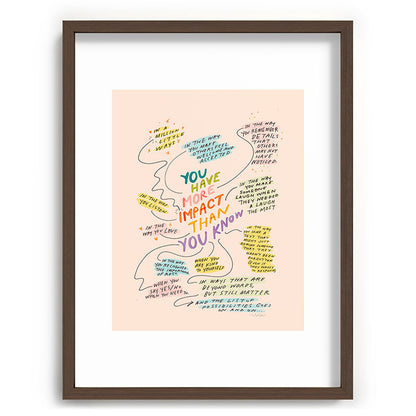 IN A
MILLION
LITTLE
WAYS
IN THE WAY
YOU MAKE
OTHERS FEEL
WELCOME AND
ACCEPTED
IN THE WAY
YOU REMEMBER
DETAILS
THAT
OTHERS
MAY NOT
HAVE
NOTICED
YOU
HAVE
MORE
IMPACT
THAN
YOU KNOW
IN THE WAY
YOU MAKE
SOMEONE
LAUGH WHEN
THEY NEEDED
A LAUGH
THE MOST
IN THE WAY
YOU LISTEN
IN THE
WAY YOU LOVE
IN THE WAY
THE IMPORTANCE
OF REST
WHEN YOU
ARE KIND
TO YOURSELF
WHEN YOU
SAY YES/NO
WHEN YOU NEED TO
IN WAYS THAT ARE
BEYOND WORDS,
BUT STILL MATTER
AND THE LIST OF
POSSIBILITIES GOES
ON AND ON...